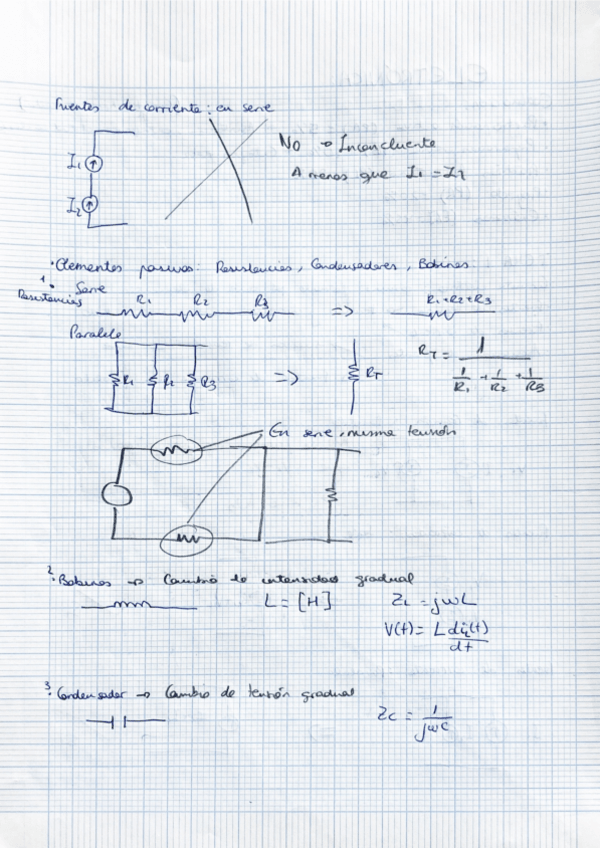 Fuentes de corriente: en serie
I₁
I₂
No → Inconcluente
A menos que I₁ = I₂
·Elementos pasivos: Resistencias, Condensadores, Bobinas
1. Serie
Resistencias
R₁ R₂ R₃ => R₁+R₂+R₃
Paralelo
R₁ R₂ R₃ => R_T
R_T = 1 / (1/R₁ + 1/R₂ + 1/R₃)
En serie, misma tensión
2. Bobinas → Cambio de intensidad gradual
L = [H]
Z_L = jωL
V(t) = L di_L(t)/dt
3. Condensador → Cambio de tensión gradual
Z_C = 1/jωC